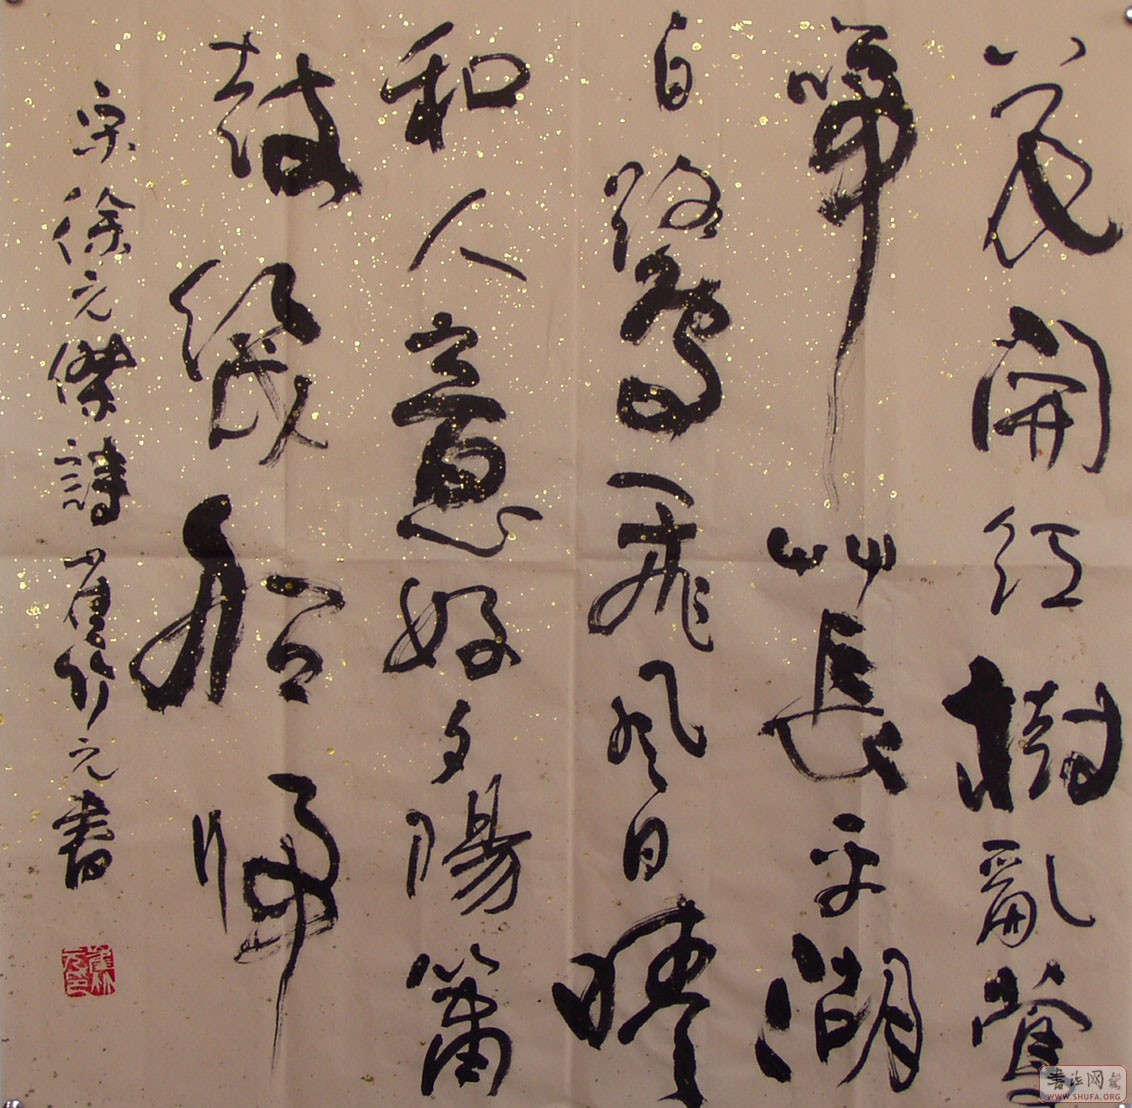 花開紅樹亂鶯
啼艸長平湖
白鷺飛風日晴
和人意好夕陽簫
鼓幾船歸
宋徐元傑詩崔竹元書
崔竹元印
WWW.SHUFA.ORG